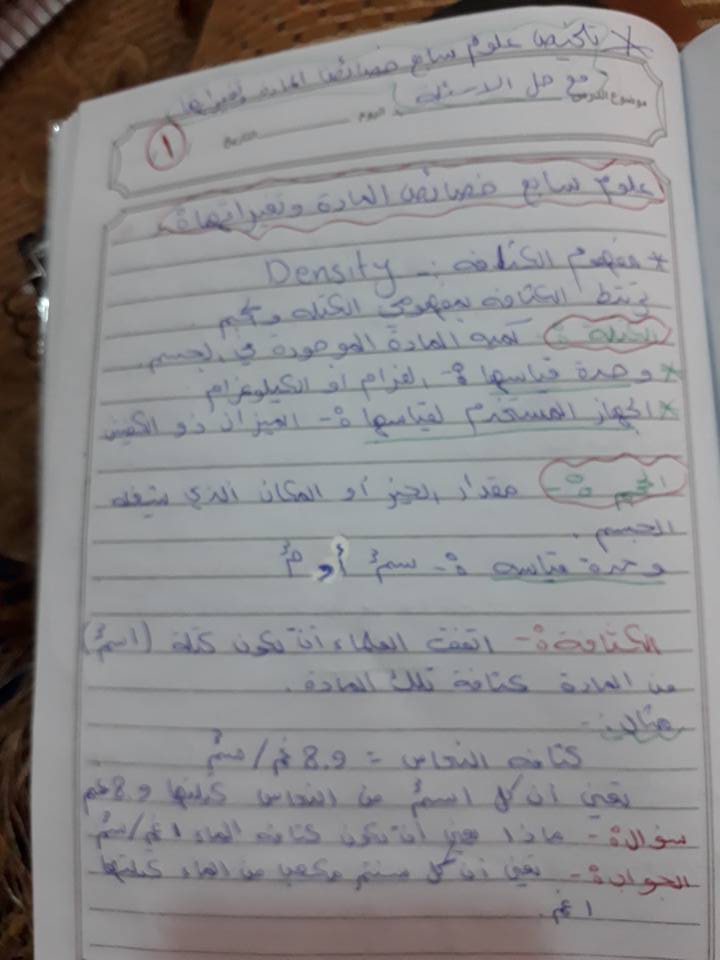 * تلخيص علوم سابع خصائص المادة وتغيراتها
موضوع الدرس ( مع حل الاسئلة ) اليوم التاريخ
١
علوم سابع خصائص المادة وتغيراتها
* مفهوم الكثافة :- Density
ترتبط الكثافة بمفهومي الكتلة والحجم
الكتلة :- كمية المادة الموجودة في الجسم
* وحدة قياسها :- الغرام أو الكيلوغرام
* الجهاز المستخدم لقياسها :- الميزان ذو الكفتين
الحجم :- مقدار الحيز أو المكان الذي يشغله
الجسم .
وحدة قياسه :- سم³ أو م³
الكثافة :- اتفق العلماء أن تكون كتلة (١سم³)
من المادة كثافة تلك المادة .
مثال :-
كثافة النحاس = 8.9 غم/سم³
يعني أن كل ١سم³ من النحاس كتلتها 8.9 غم
سؤال :- ماذا يعني أن تكون كثافة الماء ١ غم/سم³
الجواب :- يعني أن كل سنتم مكعب من الماء كتلتها
١ غم .